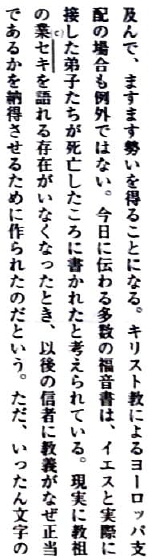 及んで、ますます勢いを得ることになる。キリスト教によるヨーロッパ支
配の場合も例外ではない。今日に伝わる多数の福音書は、イエスと実際に
接した弟子たちが死亡したころに書かれたと考えられている。現実に教祖
の業セキ(c)を語れる存在がいなくなったとき、以後の信者に教義がなぜ正当
であるかを納得させるために作られたのだという。ただ、いったん文字の